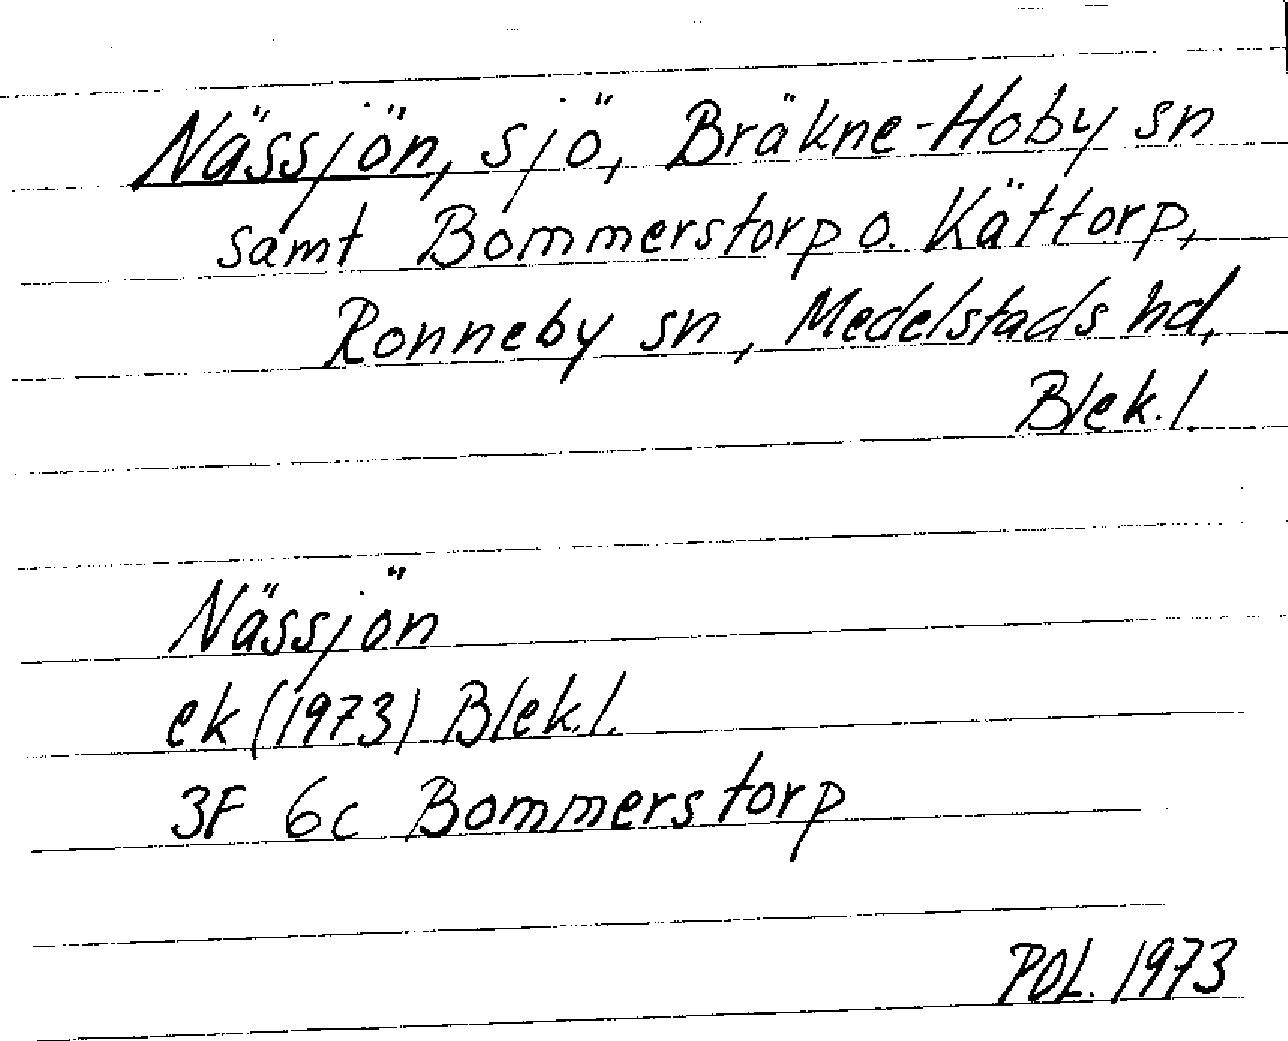 Nässjön, sjö, Bräkne-Hoby sn
samt Bommerstorp o. Kättorp,
Ronneby sn, Medelstads hd,
Blek.l.
Nässjön
ek (1973) Blek.l.
3F 6c Bommerstorp
POL. 1973